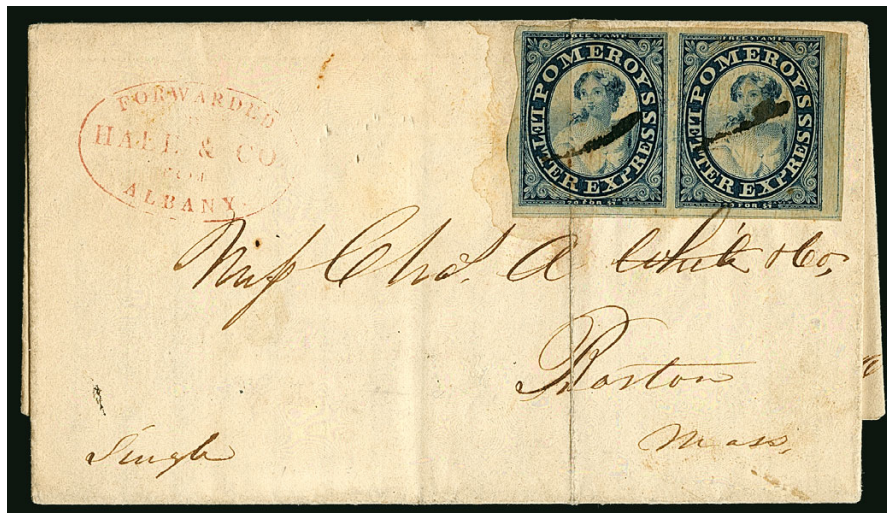 FORWARDED
HALE & CO.
ALBANY.
FREE STAMP
POMEROY'S
LETTER EXPRESS
20 FOR $1
FREE STAMP
POMEROY'S
LETTER EXPRESS
20 FOR $1
Chas. A White & Co,
Boston
Mass.
Single